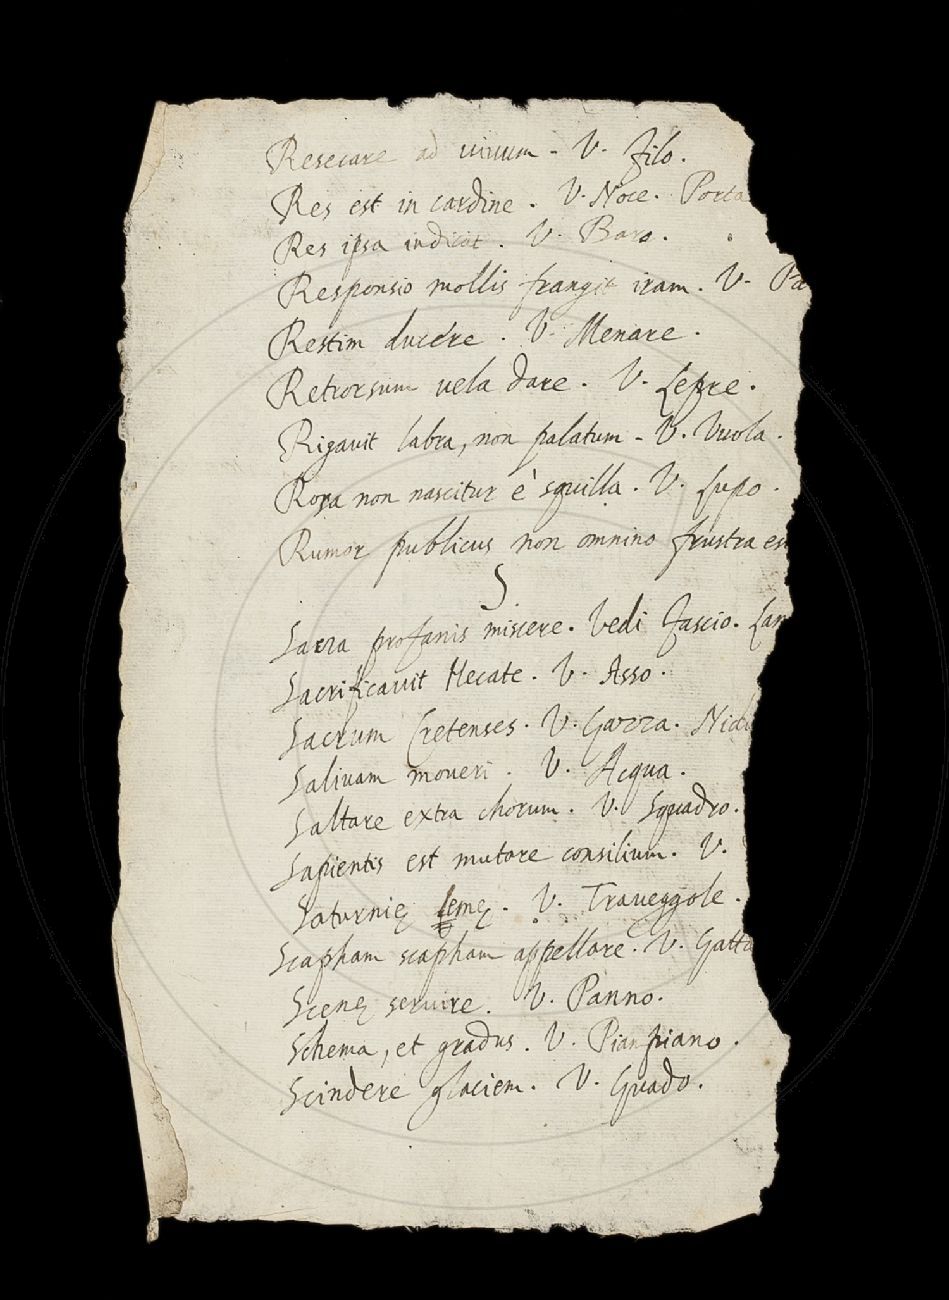 Resecare ad uiuum - V. Filo.
Res est in cardine. V. Noce. Porta
Res ipsa indicat. V. Baro.
Responsio mollis frangit iram. V. Pa
Restim ducere. V. Menare.
Retrorsum uela dare. V. Lepre.
Rigauit labra, non palatum - V. Vuola.
Rosa non nascitur è squilla. V. Lupo.
Rumor publicus non omnino frustra es
S
Sacra profanis miscere. Vedi Fascio. Lan
Sacrificauit Hecate. V. Asso.
Sacrum Cretenses. V. Gazza. Nid
Saliuam moueri. V. Acqua.
Saltare extra chorum. V. Squadro.
Sapientis est mutare consilium. V.
Saturnię lemę. V. Traueggole.
Scapham scapham appellare. V. Gatta
Scenę seruire. V. Panno.
Schema, et gradus. V. Pian piano.
Scindere glaciem. V. Guado.